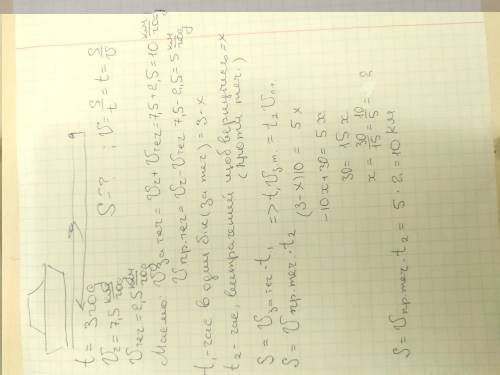 t = 3 год S-? ; V = S/t = t = S/V
Vг = 7,5 км/год
Vтег = 2,5 км/год
Маємо Vза теч = Vг + Vтег = 7,5 + 2,5 = 10 км/год
Vпр.тег = Vг - Vтег 7,5 - 2,5 = 5 км/год
t₁ - час в один бік (за теч) = 3 - x
t₂ - час, витрачений щоб вернутись = x
(проти теч.)
S = Vза теч · t₁ => t₁ Vз.т. = t₂ Vп.т.
S = Vпр.теч. · t₂ (3-x)10 = 5x
-10x + 30 = 5x
30 = 15x
x = 30/15 = 10/5 = 2
S = Vпр.теч. t₂ = 5 · 2 = 10 км